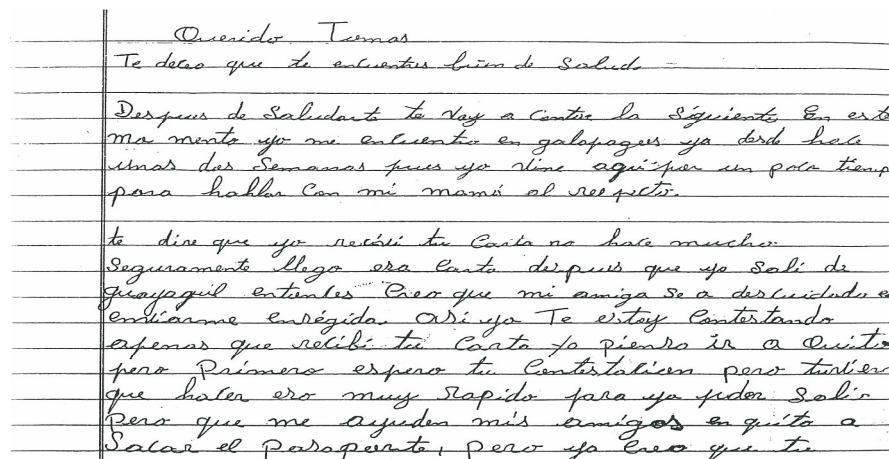 Querido Tomas
Te deceo que te encuentres bien de Salud
Despues de Saludarte te Voy a Contar lo Siguiente En este
mo mento yo me encuentro en galapagos ya desde hace
unas dos Semanas pues yo vine aqui por un poco tiemp
para hablar Con mi mamá al respecto.
te dire que yo recibi tu Carta no hace mucho
Seguramente llego esa Carta despues que yo Sali de
guayaquil entonces Creo que mi amiga Se a descuidado e
enviarme enségida. Asi yo Te estoy Contestando
apenas que recibi tu Carta yo pienso ir a Quito
pero Primero espero tu Contestacion pero
que hacer eso muy Rapido para yo poder Salir
Pero que me ayuden mis amigos en quito a
Sacar el Pasaporte, pero yo Creo que tu